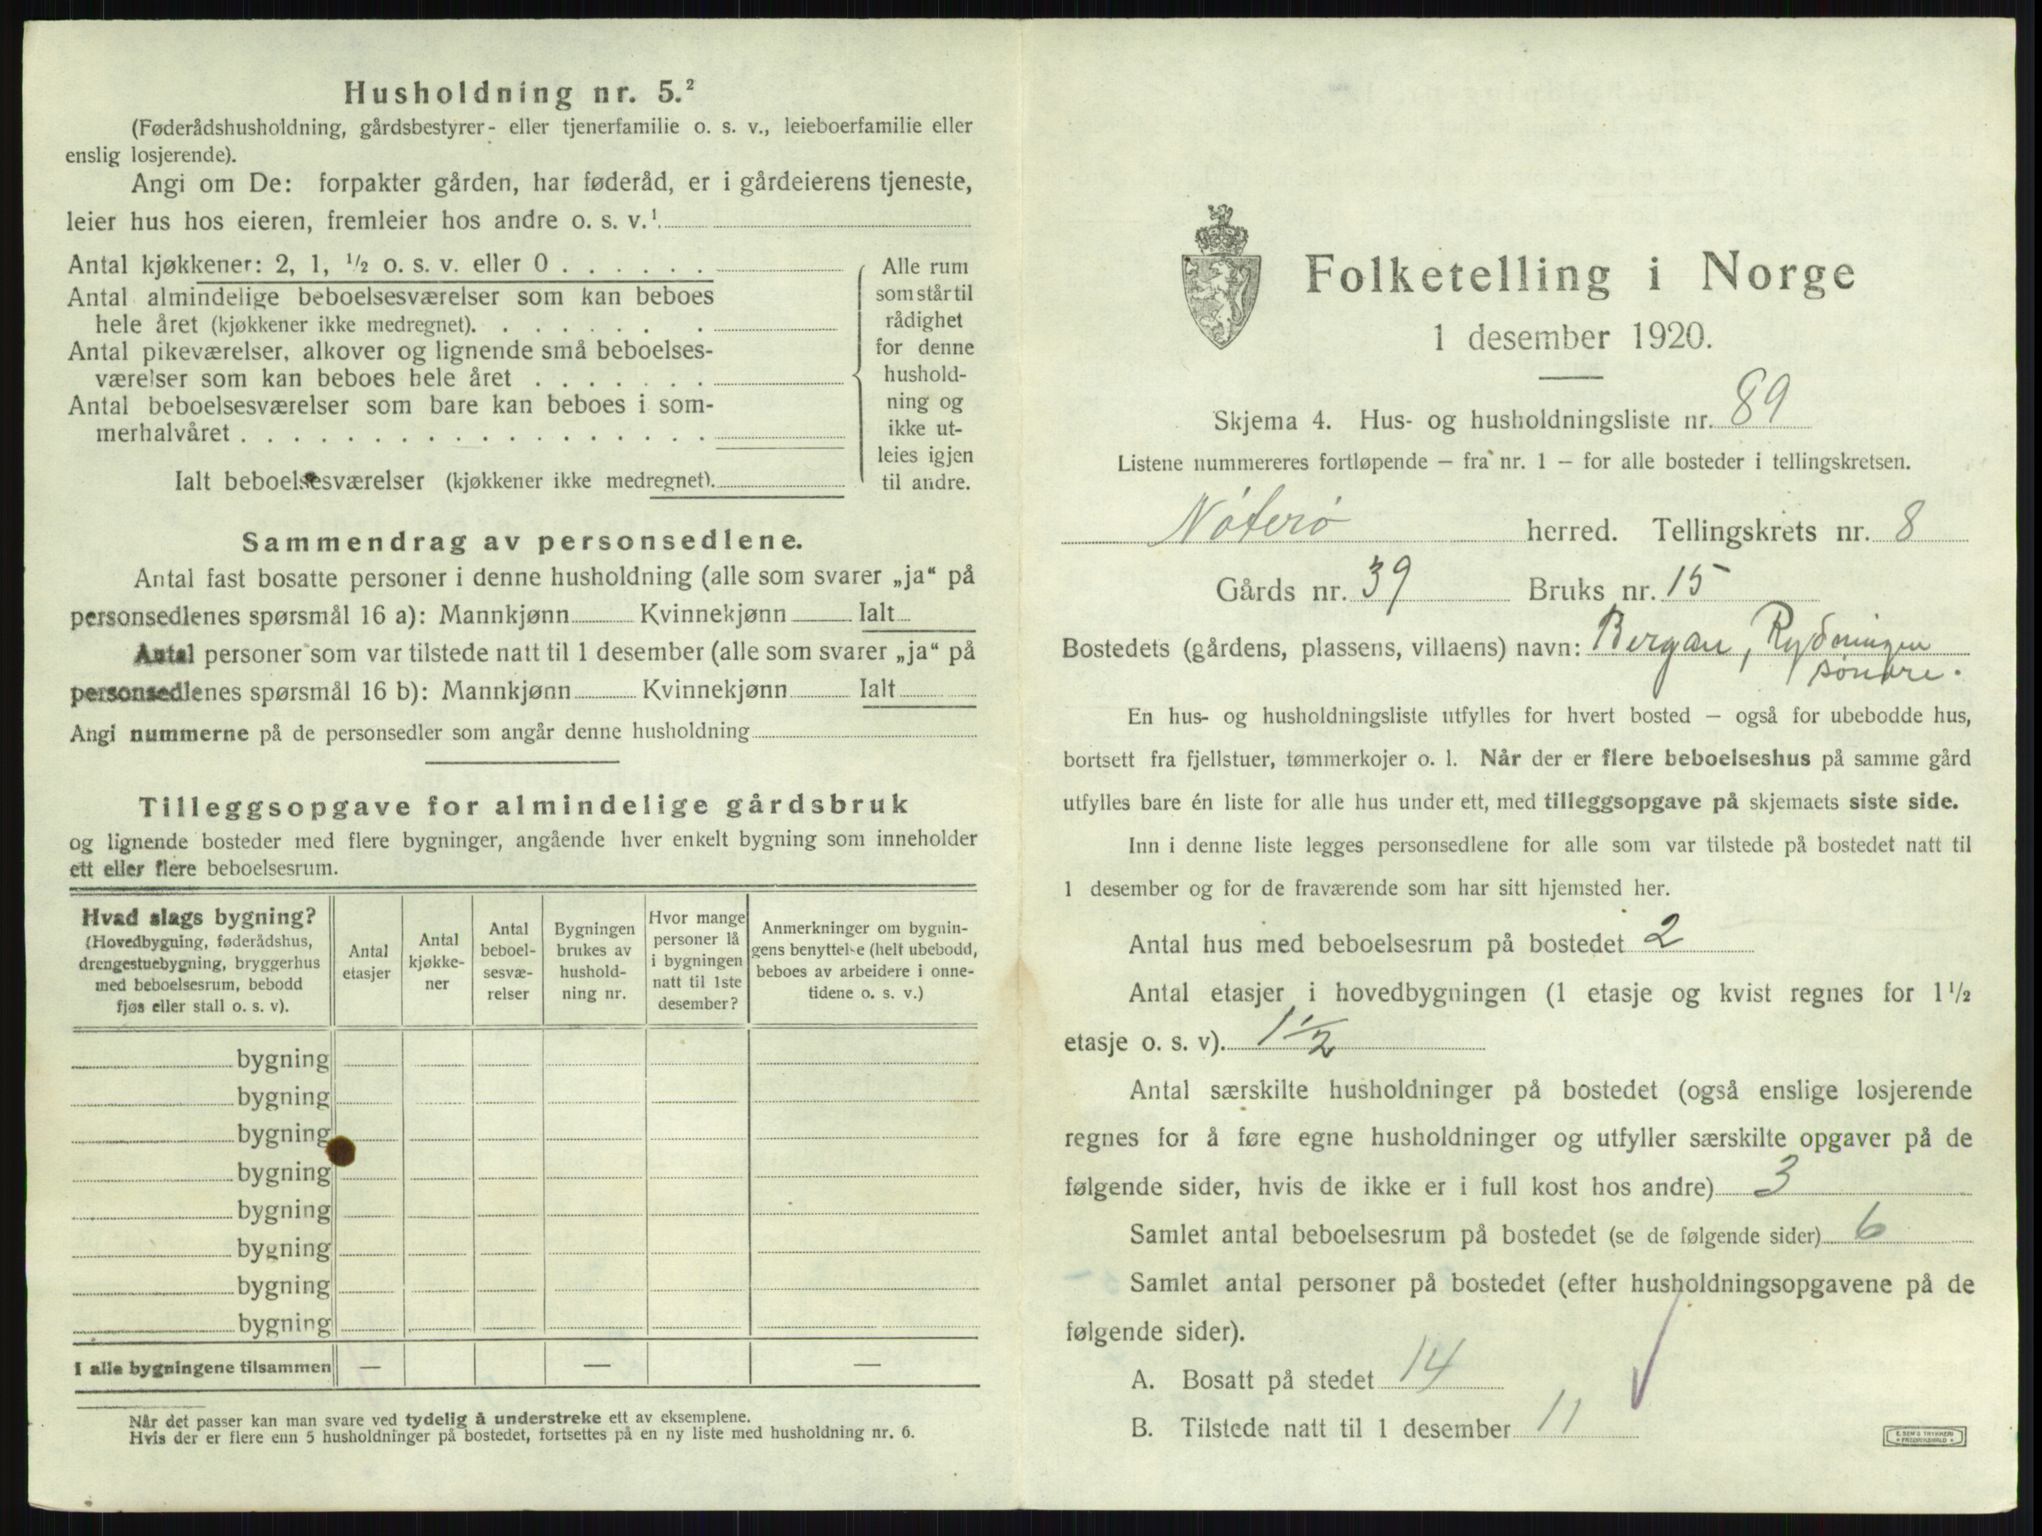 Husholdning nr. 5.²
(Føderådshusholdning, gårdsbestyrer- eller tjenerfamilie o. s. v., leieboerfamilie eller
enslig losjerende).
Angi om De: forpakter gården, har føderåd, er i gårdeierens tjeneste,
leier hus hos eieren, fremleier hos andre o. s. v.¹
Antal kjøkkener: 2, 1, ½ o. s. v. eller 0 . . . . . .
Antal almindelige beboelsesværelser som kan beboes
hele året (kjøkkener ikke medregnet). . . . . . . .
Antal pikeværelser, alkover og lignende små beboelses-
værelser som kan beboes hele året . . . . . . .
Antal beboelsesværelser som bare kan beboes i som-
merhalvåret . . . . . . . . . . . . . . . . . .
Ialt beboelsesværelser (kjøkkener ikke medregnet).
Alle rum
som står til
rådighet
for denne
hushold-
ning og
ikke ut-
leies igjen
til andre.
Sammendrag av personsedlene.
Antal fast bosatte personer i denne husholdning (alle som svarer „ja“ på
personsedlenes spørsmål 16 a): Mannkjønn Kvinnekjønn Ialt
Antal personer som var tilstede natt til 1 desember (alle som svarer „ja“ på
personsedlenes spørsmål 16 b): Mannkjønn Kvinnekjønn Ialt
Angi nummerne på de personsedler som angår denne husholdning
Tilleggsopgave for almindelige gårdsbruk
og lignende bosteder med flere bygninger, angående hver enkelt bygning som inneholder
ett eller flere beboelsesrum.
Hvad slags bygning?
(Hovedbygning, føderådshus,
drengestuebygning, bryggerhus
med beboelsesrum, bebodd
fjøs eller stall o. s. v).
Antal
etasjer
Antal
kjøkke-
ner
Antal
beboel-
sesvæ-
relser
Bygningen
brukes av
hushold-
ning nr.
Hvor mange
personer lå
i bygningen
natt til 1ste
desember?
Anmerkninger om bygnin-
gens benyttelse (helt ubebodd,
beboes av arbeidere i onne-
tidene o. s. v.)
bygning
bygning
bygning
bygning
bygning
bygning
bygning
bygning
I alle bygningene tilsammen — — —
Når det passer kan man svare ved tydelig å understreke ett av eksemplene.
Hvis der er flere enn 5 husholdninger på bostedet, fortsettes på en ny liste med husholdning nr. 6.
Folketelling i Norge
1 desember 1920.
Skjema 4. Hus- og husholdningsliste nr. 89
Listene nummereres fortløpende — fra nr. 1 — for alle bosteder i tellingskretsen.
Nøterø herred. Tellingskrets nr. 8
Gårds nr. 39 Bruks nr. 15
Bostedets (gårdens, plassens, villaens) navn: Bergan, Rydningen
søndre.
En hus- og husholdningsliste utfylles for hvert bosted — også for ubebodde hus,
bortsett fra fjellstuer, tømmerkojer o. l. Når der er flere beboelseshus på samme gård
utfylles bare én liste for alle hus under ett, med tilleggsopgave på skjemaets siste side.
Inn i denne liste legges personsedlene for alle som var tilstede på bostedet natt til
1 desember og for de fraværende som har sitt hjemsted her.
Antal hus med beboelsesrum på bostedet 2
Antal etasjer i hovedbygningen (1 etasje og kvist regnes for 1½
etasje o. s. v). 1½
Antal særskilte husholdninger på bostedet (også enslige losjerende
regnes for å føre egne husholdninger og utfyller særskilte opgaver på de
følgende sider, hvis de ikke er i full kost hos andre) 3
Samlet antal beboelsesrum på bostedet (se de følgende sider) 6
Samlet antal personer på bostedet (efter husholdningsopgavene på de
følgende sider).
A. Bosatt på stedet 14
B. Tilstede natt til 1 desember 11